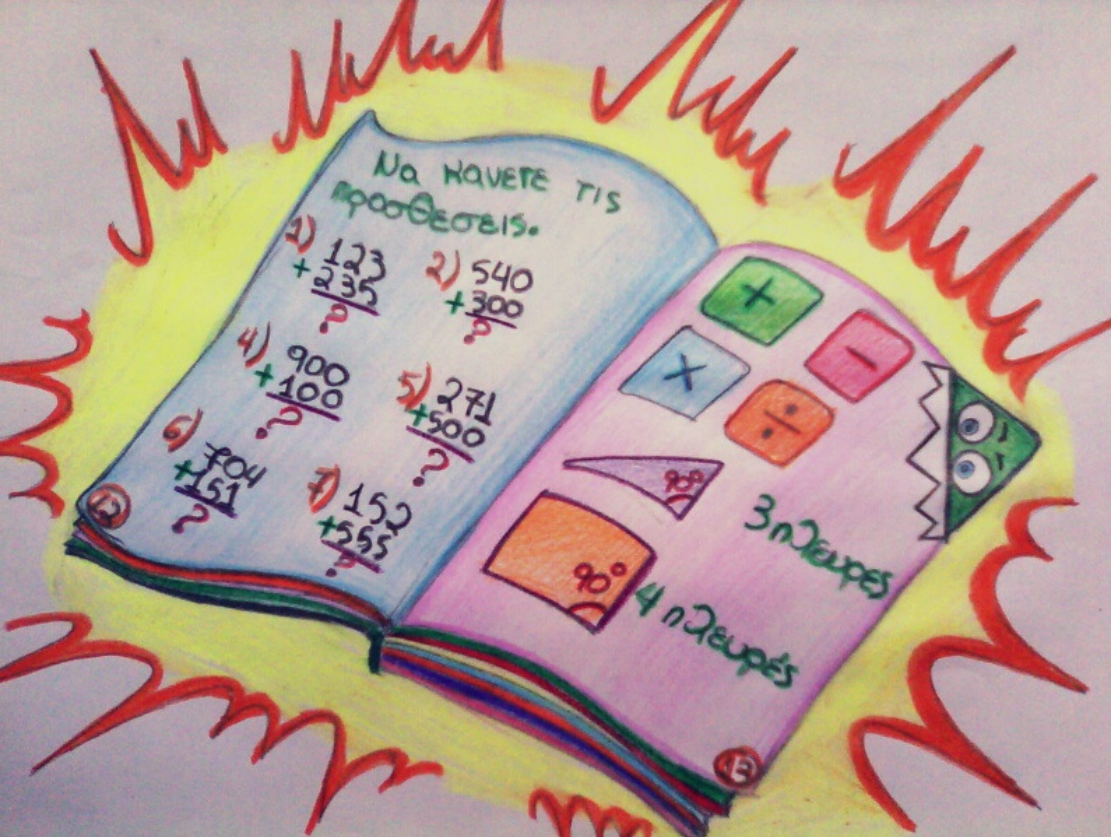 Να κανετε τις
προσθεσεις.
1) 123
+ 235
?
2) 540
+ 300
?
4) 900
+ 100
?
5) 271
+ 500
?
6) 704
+ 151
?
7) 152
+ 555
?
12
+
−
×
÷
90°
3 πλευρές
90°
4 πλευρές
13